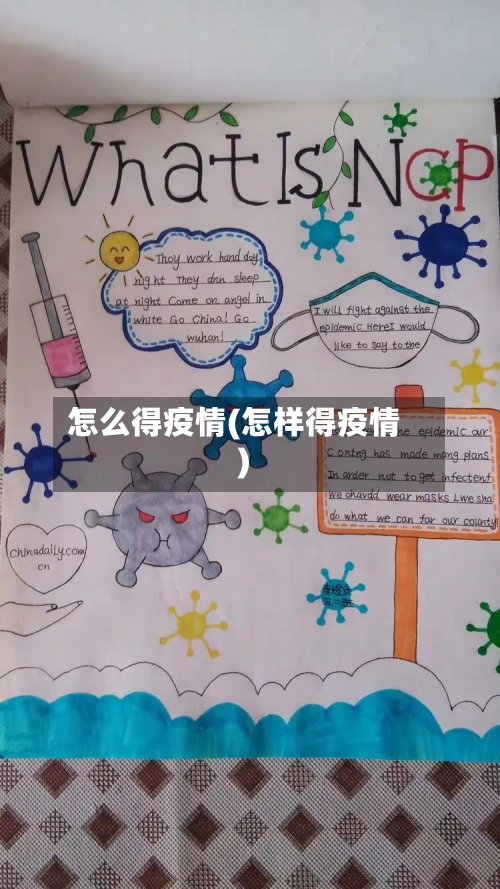 What Is NCP
Thoy work hand day
night They dnn sleep
at night Come on angel in
white Go China! Go
wuhan!
I will fight against the
epidemic HereI would
like to say to the
怎么得疫情(怎样得疫情
)
the epidemic our
Contng has made mang plans
In arder not to get infectenf
We ohavdd wear masks Lwe sho
do what we can far our county
Chinadaily.com
cn